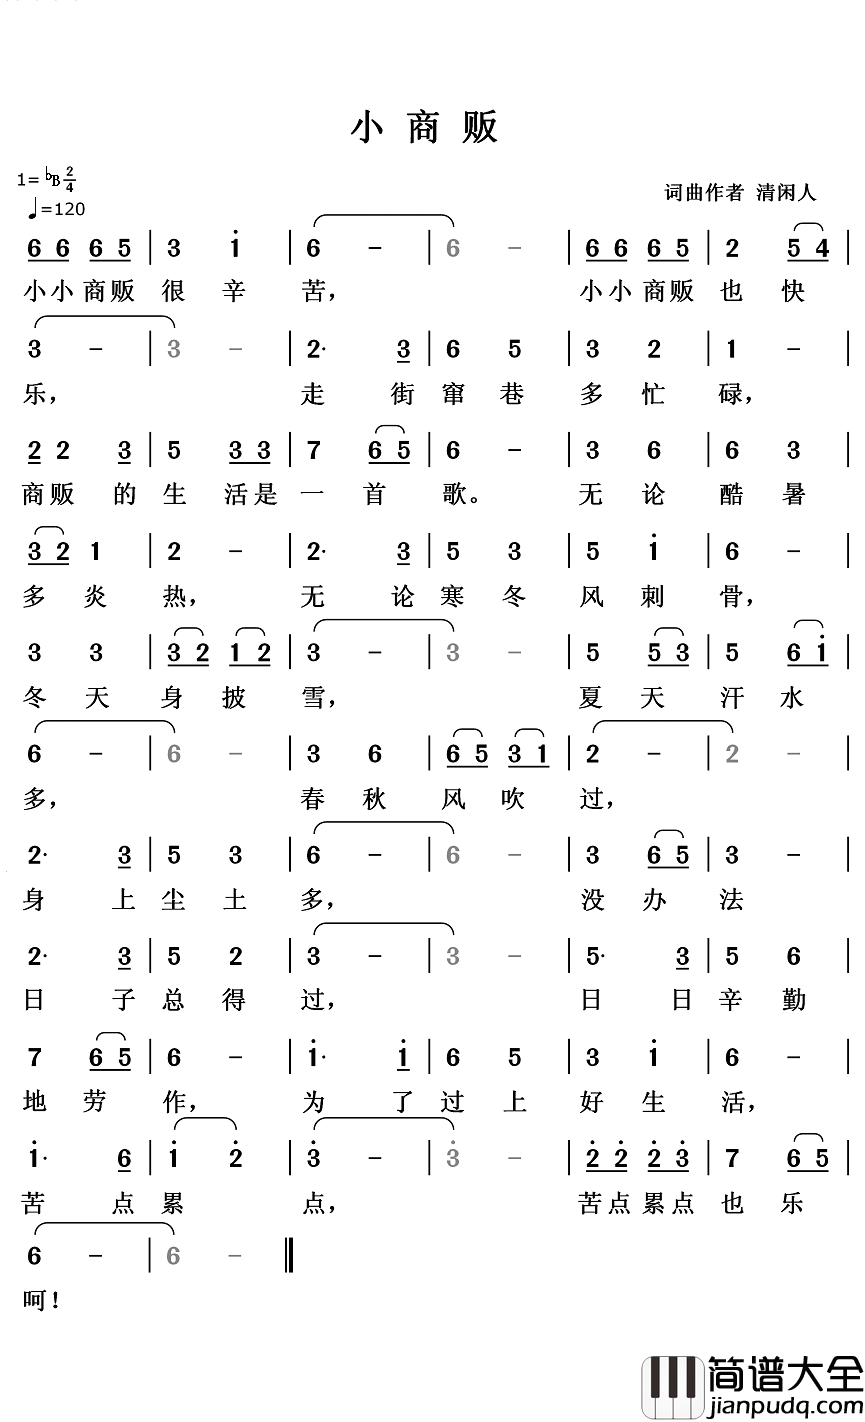 小 商 贩
1= bB 2/4
♩=120
词曲作者 清闲人
6 6 6 5 | 3 1̇ | 6 – | 6 – | 6 6 6 5 | 2 5 4 |
小小商贩 很 辛 苦， 小小商贩 也 快
3 – | 3 – | 2· 3 | 6 5 | 3 2 | 1 – |
乐， 走 街 窜 巷 多 忙 碌，
2 2 3 | 5 3 3 | 7 6 5 | 6 – | 3 6 | 6 3 |
商贩 的 生 活是 一 首 歌。 无 论 酷 暑
3 2 1 | 2 – | 2· 3 | 5 3 | 5 1̇ | 6 – |
多 炎 热， 无 论 寒 冬 风 刺 骨，
3 3 | 3 2 1 2 | 3 – | 3 – | 5 5 3 | 5 6 1̇ |
冬 天 身 披 雪， 夏 天 汗 水
6 – | 6 – | 3 6 | 6 5 3 1 | 2 – | 2 – |
多， 春 秋 风 吹 过，
2· 3 | 5 3 | 6 – | 6 – | 3 6 5 | 3 – |
身 上 尘 土 多， 没 办 法
2· 3 | 5 2 | 3 – | 3 – | 5· 3 | 5 6 |
日 子 总 得 过， 日 日 辛 勤
7 6 5 | 6 – | 1̇· 1̇ | 6 5 | 3 1̇ | 6 – |
地 劳 作， 为 了 过 上 好 生 活，
1̇· 6 | 1̇ 2̇ | 3̇ – | 3̇ – | 2̇ 2̇ 2̇ 3̇ | 7 6 5 |
苦 点 累 点， 苦点累点 也 乐
6 – | 6 – ‖
呵！
简谱大全
jianpudq.com